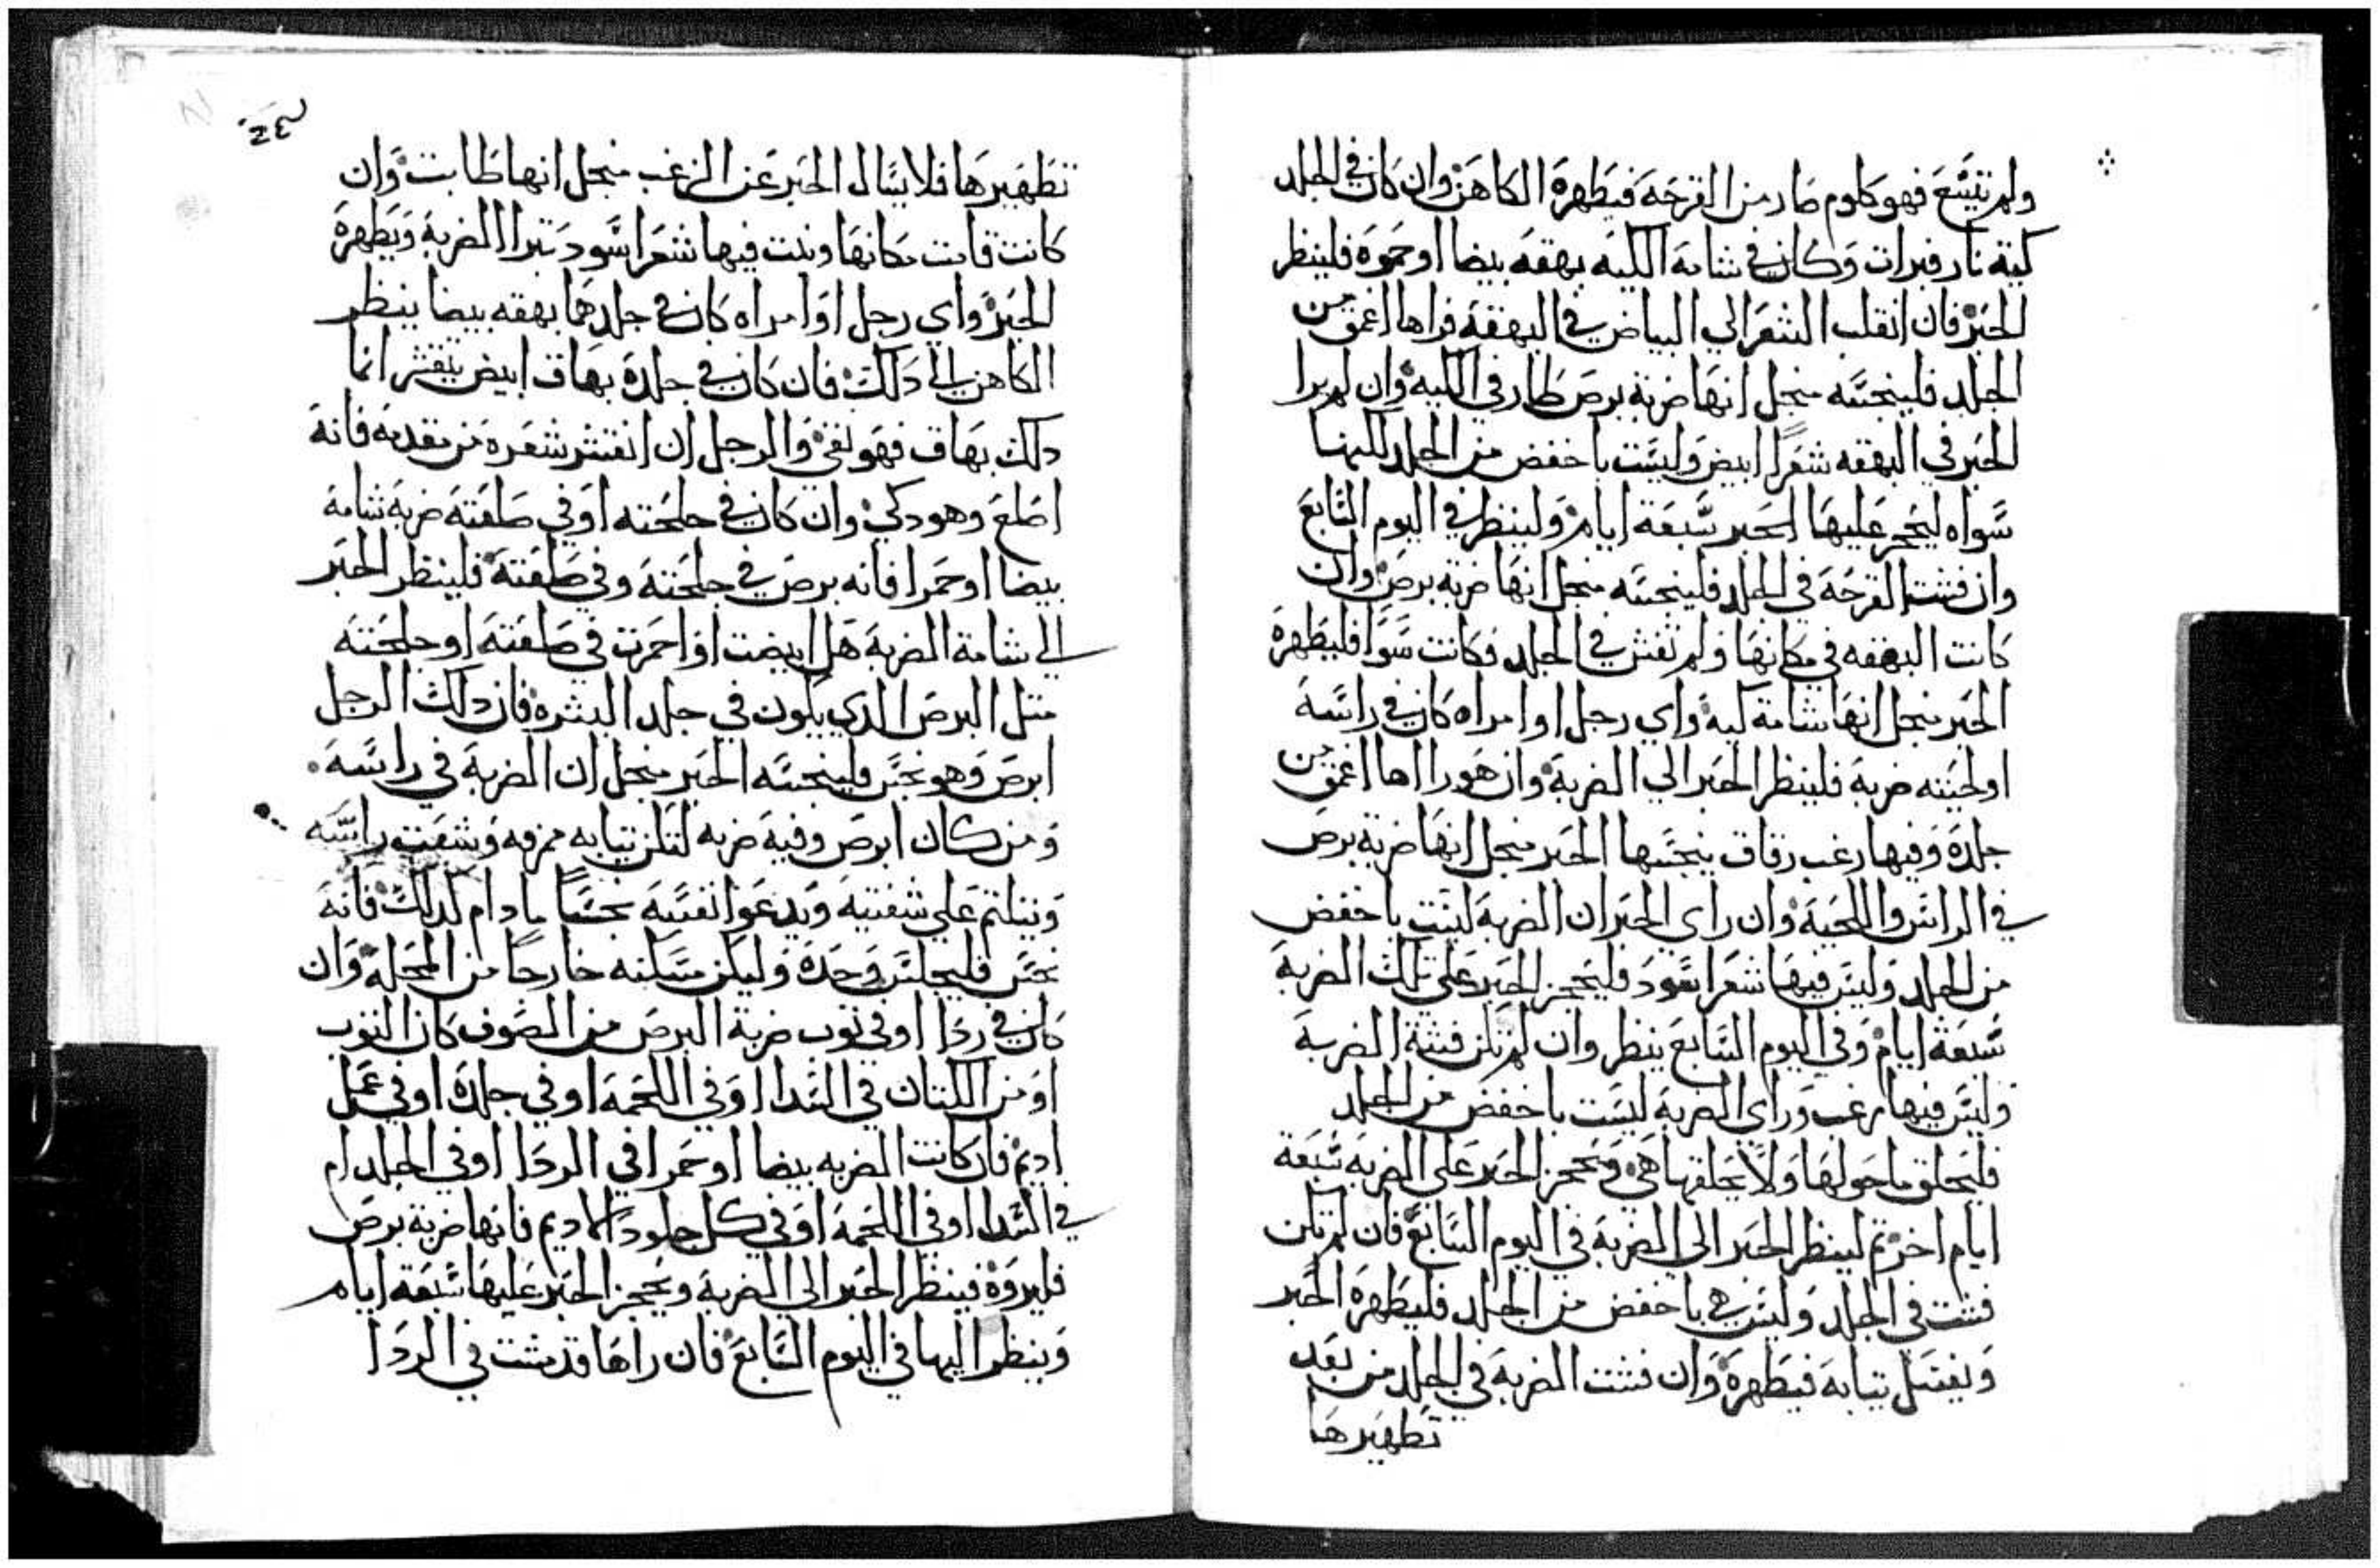 ولم تتسع فهو كلوم صار من القرحة فيطهره الكاهن وان كان في الجلد
كية نار فبرات وكان في شامة الكيه بهقه بيضا او حموه فلينظر
الحبر فان انقلب الشعر الي البياض في البهقه فراها اغمق من
الجلد فلينجسه منجل انها ضربة برص طار في الكيه وان لم يرا
الحبر في البهقه شعرًا ابيض وليست باخفض من الجلد لكنها
سواه ليحجر عليها الحبر سبعة ايام ولينظر في اليوم السابع
وان فشت القرحه في الجلد فلينجسه منجل انها ضربة برص وان
كانت البهقه في مكانها ولم تفش في الجلد فكانت سوا فليطهره
الحبر منجل انها شامة كيه واي رجل او امراه كان في راسه
او لحيته ضربة فلينظر الحبر الي الضربة وان هو راها اغمق من
جلده وفيها زغب رقاق ينجسها الحبر منجل انها ضربة برص
في الراس واللحية وان راى الحبر ان الضربة ليست باخفض
من الجلد وليس فيها شعر اسود فليحجز الحبر على تلك الضربة
سبعة ايام وفي اليوم السابع ينظر وان لم تكن فشة الضربة
وليس فيها زغب وراى الضربة ليست باخفض من الجلد
فليحلق ما حولها ولا يحلقها هي ويحجز الحبر على الضربه سبعة
ايام اخر ثم لينظر الحبر الى الضربة في اليوم السابع فان لم تكن
فشت في الجلد وليس هي باخفض من الجلد فليطهره الحبر
ويغسل تيابه فيطهره وان فشت الضربة في الجلد من بعد
تطهيرها
تطهيرها فلا يسال الحبر عن الزغب منجل انها طابت وان
كانت قامت مكانها ونبت فيها شعر اسود تبرا الضربة ويطهره
الحبر واي رجل او امراه كان في جلدهما بهقه بيضا ينظر
الكاهن الى دلك فان كان في جلده بهاق ابيض يتقشر انما
دلك بهاق فهو نقي والرجل ان انقشر شعره من مقدمه فانه
اصلع وهو دكي وان كان في جلحته او في صلعته ضربة شامة
بيضا او حمرا فانه برص في جلحته وفي صلعته فلينظر الحبر
الي شامة الضربة هل ابيضت او احمرت في صلعته او جلحته
متل البرص الدي يكون في جلد البشره فان دلك الرجل
ابرص وهو نجس فلينجسه الحبر منجل ان الضربة في راسه
ومن كان ابرص وفيه ضربه لتكن تيابه ممزقه وشعت راسه
ويتلتم على شفتيه ويدعوا نفسه نجسًا ما دام كدلك فانه
نجس فليجلس وحده وليكن مسكنه خارجًا من المحله وان
كان في ردا او في توب ضربة البرص من الصوف كان التوب
او من الكتان في السدا او في اللحمة او في جلده او في عمل
اديم فان كانت الضربه بيضا او حمرا في الردا او في الجلد ام
في السدا او في اللحمة او في كل جلود الاديم فانها ضربة برص
فليروه فينظر الحبر الى الضربة ويحجز الحبر عليها سبعة ايام
وينظر اليها في اليوم السابع فان راها قد مشت في الردا